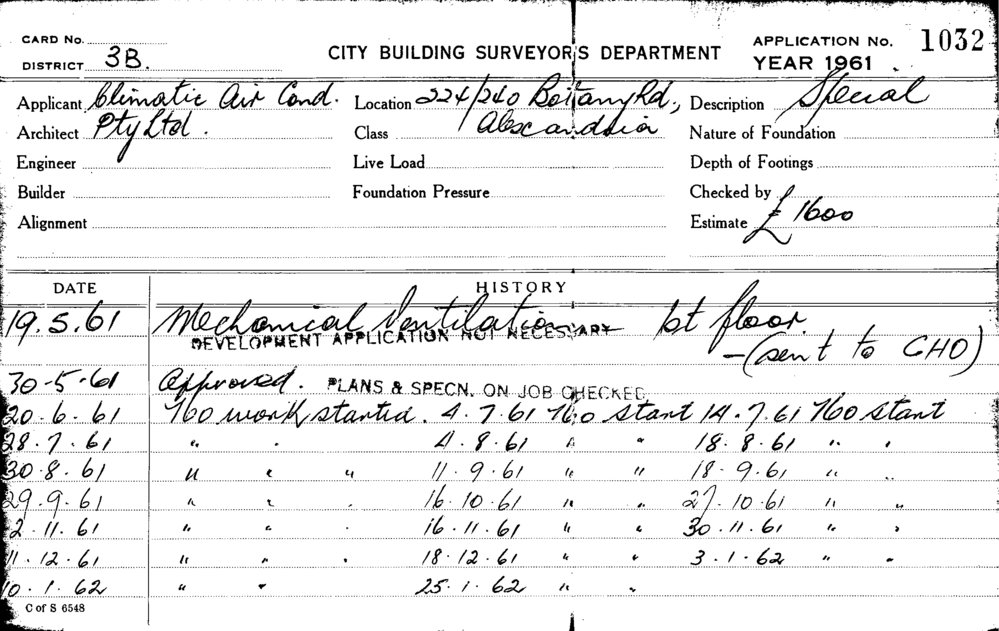 CARD No. CITY BUILDING SURVEYOR'S DEPARTMENT APPLICATION No. 1032
DISTRICT 3B. YEAR 1961
Applicant Climatic Air Cond. Location 224/240 Botany Rd., Description Special
Architect Pty Ltd. Class Alexandria Nature of Foundation
Engineer Live Load Depth of Footings
Builder Foundation Pressure Checked by
Alignment Estimate £1600
DATE HISTORY
19.5.61 Mechanical Ventilation 1st floor.
DEVELOPMENT APPLICATION NOT NECESSARY
—(sent to CHO)
30-5-61 Approved. PLANS & SPECN. ON JOB CHECKED
20.6.61 No work started. 4.7.61 No start 14.7.61 No start
28.7.61 " " 4.8.61 " " 18.8.61 " "
30.8.61 " " " 11.9.61 " " 18.9.61 " "
29.9.61 " " " 16.10.61 " " 27.10.61 " "
2.11.61 " " " 16.11.61 " " 30.11.61 " "
11.12.61 " " " 18.12.61 " " 3.1.62 " "
10.1.62 " " 25.1.62 " "
C of S 6548